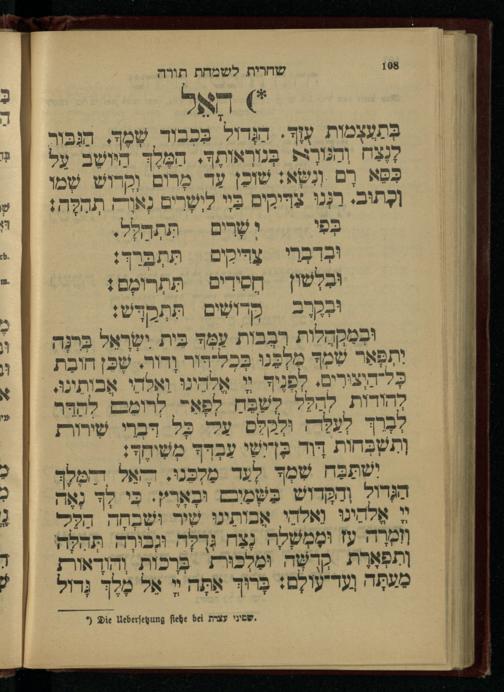 108
שחרית לשמחת תורה
*) הָאֵל
בְּתַעֲצֻמוֹת עֻזֶּךָ. הַגָּדוֹל בִּכְבוֹד שְׁמֶךָ. הַגִּבּוֹר
לָנֶצַח וְהַנּוֹרָא בְּנוֹרְאוֹתֶיךָ. הַמֶּלֶךְ הַיּוֹשֵׁב עַל
כִּסֵּא רָם וְנִשָּׂא: שׁוֹכֵן עַד מָרוֹם וְקָדוֹשׁ שְׁמוֹ
וְכָתוּב. רַנְּנוּ צַדִּיקִים בַּיְיָ לַיְשָׁרִים נָאוָה תְהִלָּה:
בְּפִי יְשָׁרִים תִּתְהַלָּל.
וּבְדִבְרֵי צַדִּיקִים תִּתְבָּרַךְ:
וּבִלְשׁוֹן חֲסִידִים תִּתְרוֹמָם:
וּבְקֶרֶב קְדוֹשִׁים תִּתְקַדָּשׁ:
וּבְמַקְהֲלוֹת רִבְבוֹת עַמְּךָ בֵּית יִשְׂרָאֵל בְּרִנָּה
יִתְפָּאַר שִׁמְךָ מַלְכֵּנוּ בְּכָל־דּוֹר וָדוֹר. שֶׁכֵּן חוֹבַת
כָּל־הַיְצוּרִים. לְפָנֶיךָ יְיָ אֱלֹהֵינוּ וֵאלֹהֵי אֲבוֹתֵינוּ.
לְהוֹדוֹת לְהַלֵּל לְשַׁבֵּחַ לְפָאֵר לְרוֹמֵם לְהַדֵּר
לְבָרֵךְ לְעַלֵּה וּלְקַלֵּס עַל כָּל דִּבְרֵי שִׁירוֹת
וְתִשְׁבְּחוֹת דָּוִד בֶּן־יִשַׁי עַבְדְּךָ מְשִׁיחֶךָ:
יִשְׁתַּבַּח שִׁמְךָ לָעַד מַלְכֵּנוּ. הָאֵל הַמֶּלֶךְ
הַגָּדוֹל וְהַקָּדוֹשׁ בַּשָּׁמַיִם וּבָאָרֶץ. כִּי לְךָ נָאֶה
יְיָ אֱלֹהֵינוּ וֵאלֹהֵי אֲבוֹתֵינוּ שִׁיר וּשְׁבָחָה הַלֵּל
וְזִמְרָה עֹז וּמֶמְשָׁלָה נֶצַח גְּדֻלָּה וּגְבוּרָה תְּהִלָּה
וְתִפְאֶרֶת קְדֻשָּׁה וּמַלְכוּת בְּרָכוֹת וְהוֹדָאוֹת
מֵעַתָּה וְעַד־עוֹלָם: בָּרוּךְ אַתָּה יְיָ אֵל מֶלֶךְ גָּדוֹל
*) Die Uebersetzung siehe bei שמיני עצרת.